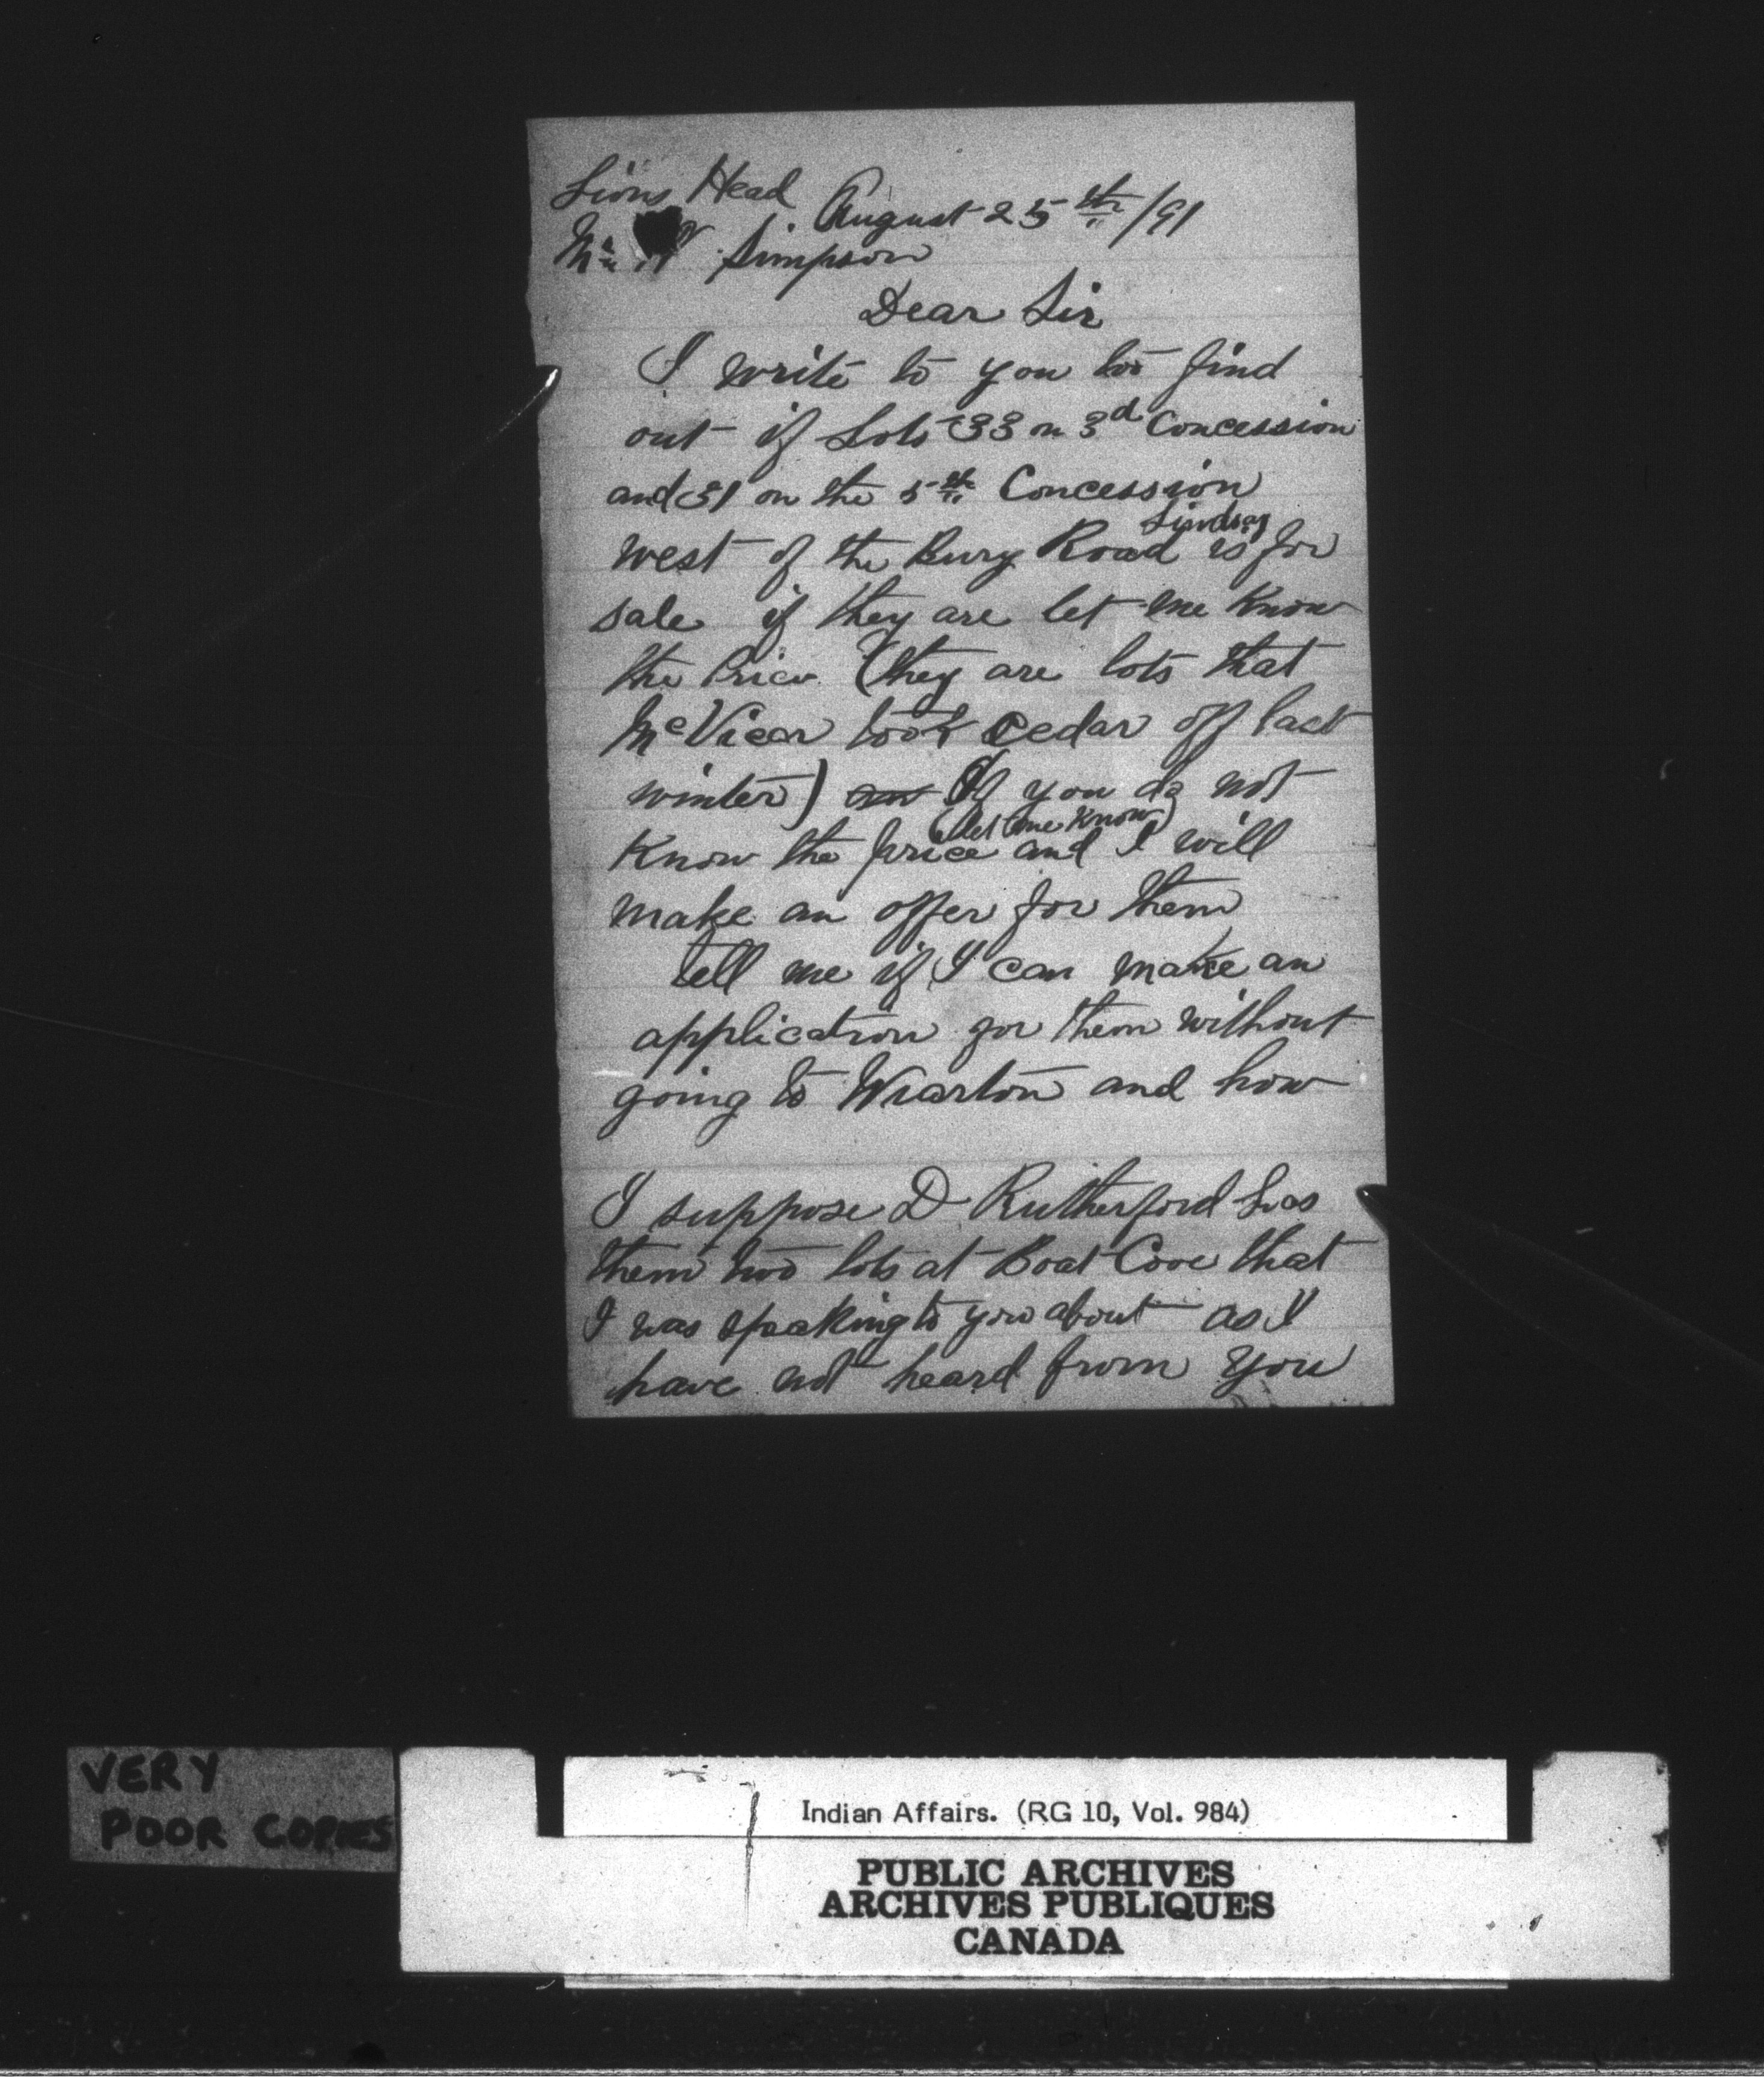 Lions Head August 25th/91
Mr Simpson
Dear Sir
I write to you too find
out if Lots 33 on 3d Concession
and 31 on the 5th Concession
west of the Bury Road Lindsay is for
sale if they are let me Know
the Price (they are lots that
McVicar took Cedar off last
winter) If you do not
Know the price (let me Know) and I will
make an offer for them
tell me if I can make an
application for them without
going to Wiarton and how
I suppose D Rutherford has
them two lots at Boat Cove that
I was speaking to you about as I
have not heard from you
VERY
POOR COPIES
Indian Affairs. (RG 10, Vol. 984)
PUBLIC ARCHIVES
ARCHIVES PUBLIQUES
CANADA